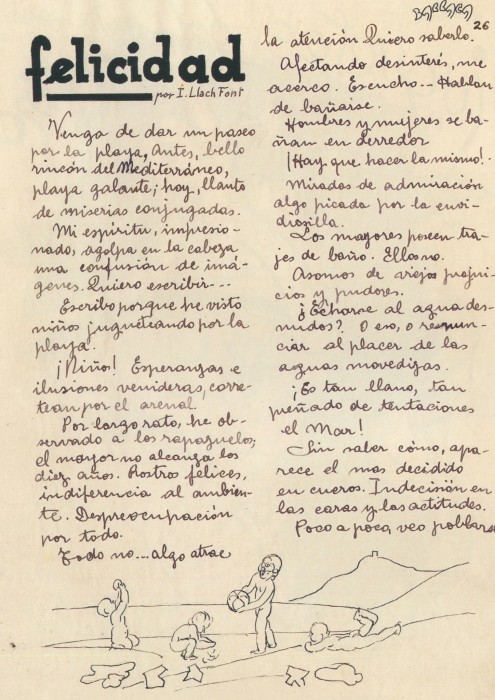 BARBARA
26
felicidad
por I. Llach Font
Vengo de dar un paseo
por la playa, Antes, bello
rincón del Mediterráneo,
playa galante; hoy, llanto
de miserias conjugadas.
Mi espiritu, impresio-
nado, agolpa en la cabeza
una confusión de imá-
genes. Quiero escribir...
Escribo porque he visto
niños jugueteando por la
playa.
¡Niños! Esperanzas e
ilusiones venideras, corre-
tean por el arenal.
Por largo rato, he ob-
servado a los rapazuelos;
el mayor no alcanza los
diez años. Rostros felices,
indiferencia al ambien-
te. Despreocupación
por todo.
Todo no... algo atrae
la atención Quiero saberlo.
Afectando desinterés, me
acerco. Escucho... Hablan
de bañaise.
Hombres y mujeres se ba-
ñan en derredor
¡Hay que hacer lo mismo!
Miradas de admiración
algo picada por la envi-
diosilla.
Los mayores poseen tra-
jes de baño. Ellos no.
Asomos de viejos prejui-
cios y pudores.
¿Echarse al agua des-
nudos? O eso, o renun-
ciar al placer de las
aguas movedizas.
¡Es tan llano, tan
preñado de tentaciones
el Mar!
Sin saber cómo, apa-
rece el mas decidido
en cueros. Indecisión en
las caras y las actitudes.
Poco a poco, veo poblarse